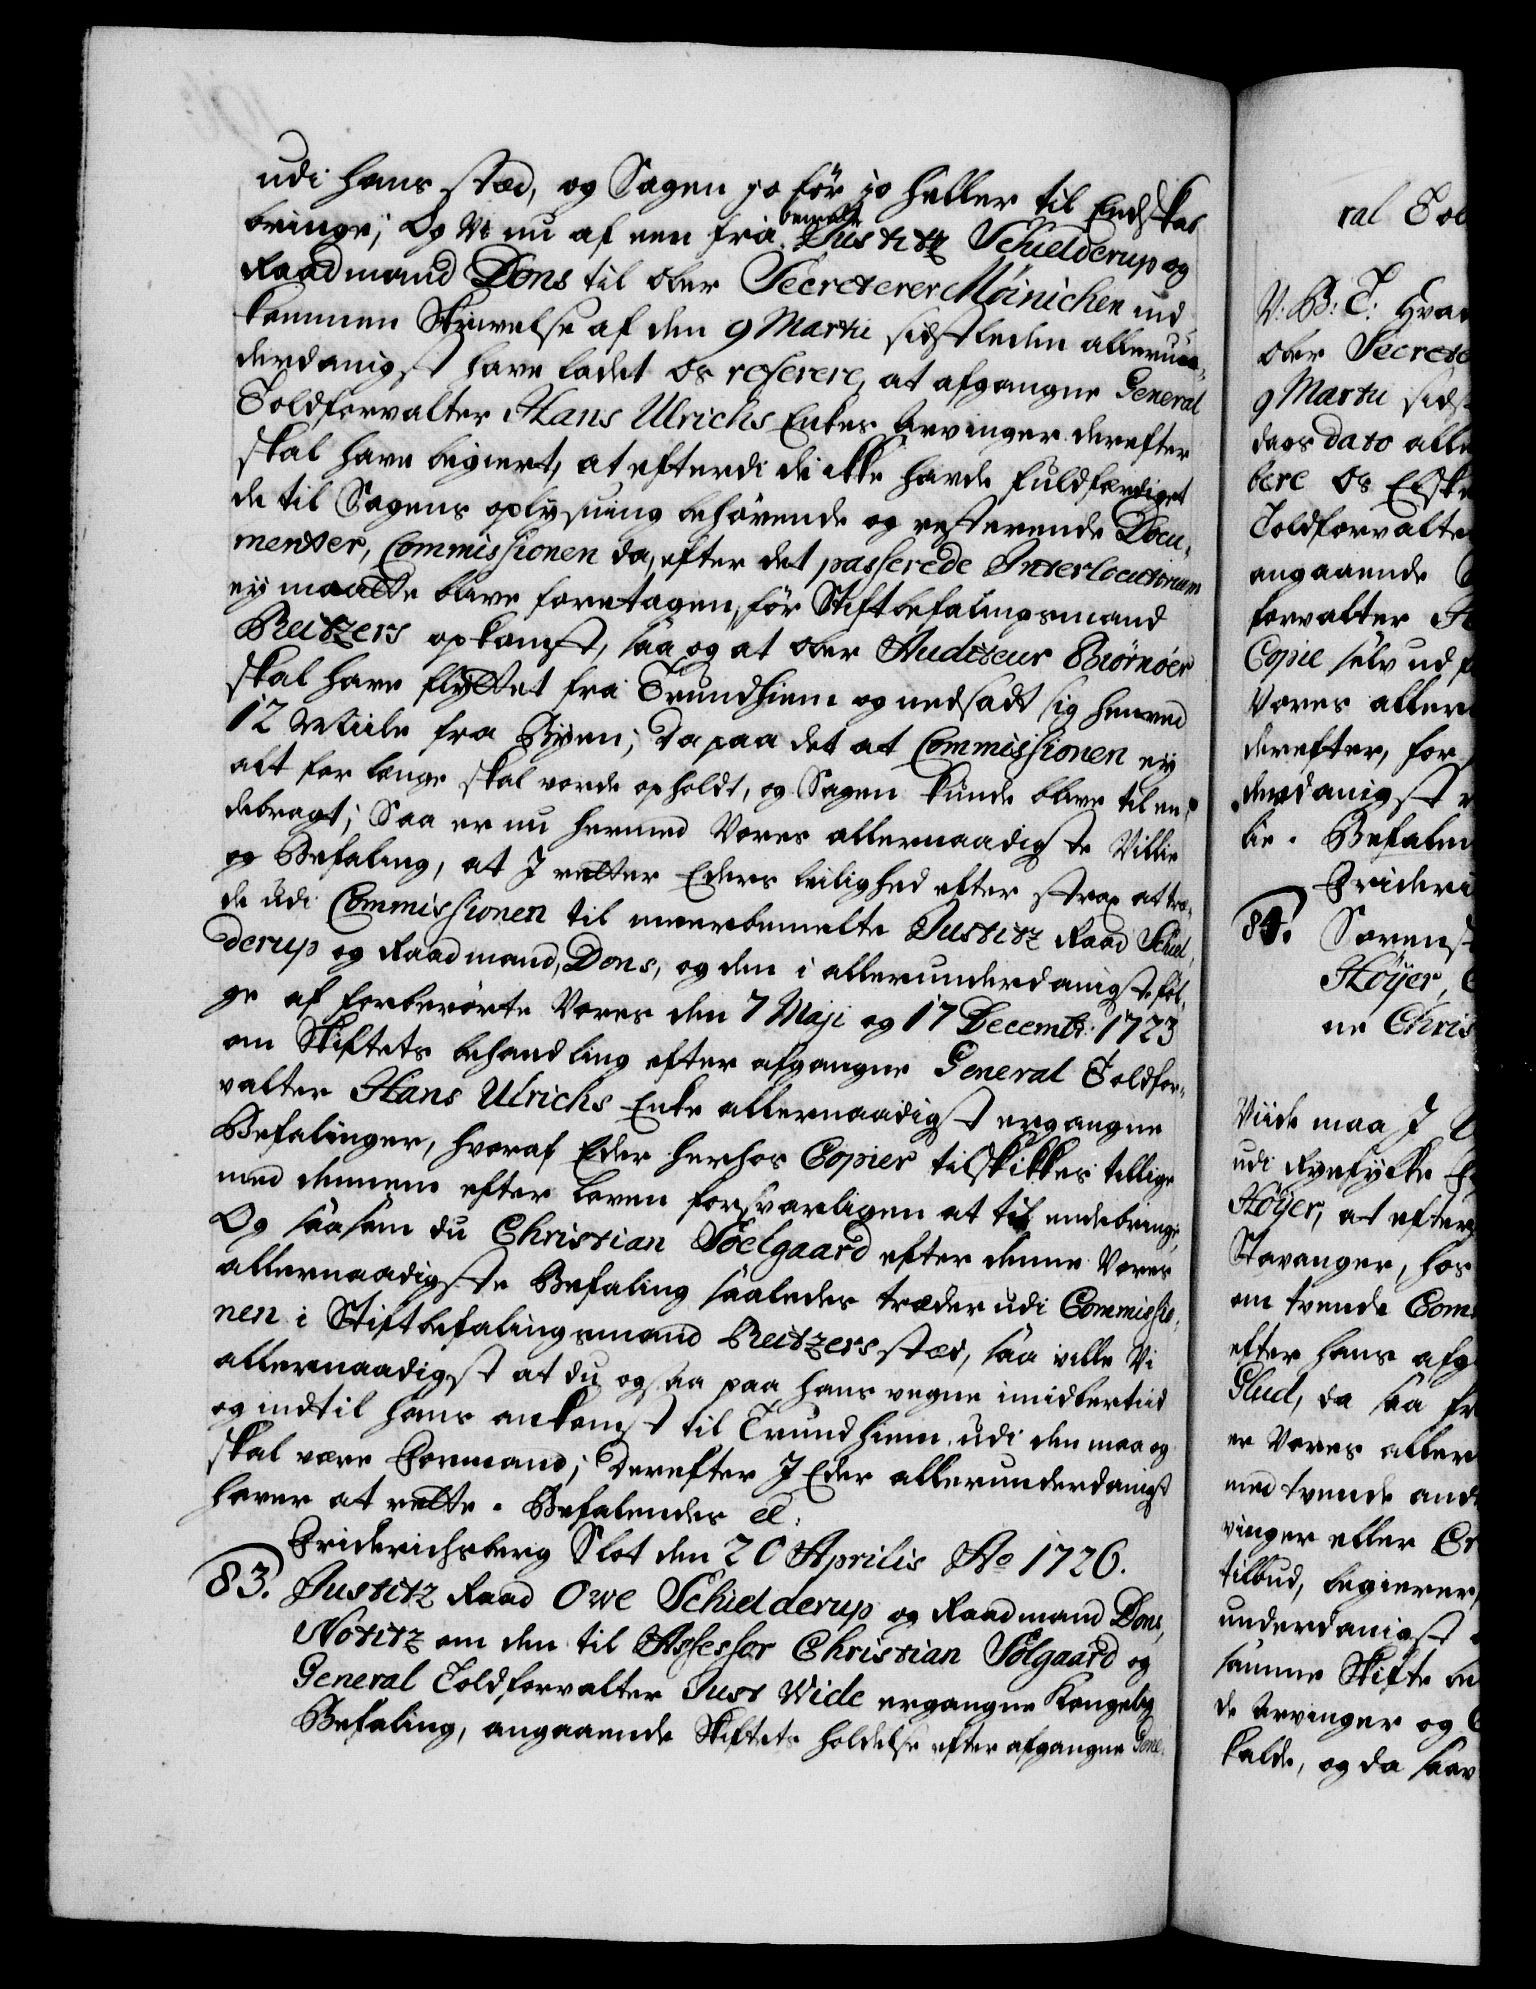 udi hans stæd, og Sagen jo før jo heller til Endskab
bringe; Og Vi nu af een fra bemelte Justitz Schielderup og
Raadmand Dons til ober Secreterer Möinichen ind-
kommen Skrivelse af den 9 Martii sidstleden allerun-
derdanigst have ladet os referere, at afgangne General
Toldforvalter Hans Ulrichs Enkes Arvinger derefter
skal have begiert, at efterdi de ikke havde fuldfærdiget
de til Sagens oplysning behövende og resterende Docu-
menter, Commissionen da, efter det passerede Interlocutorium
ey maatte blive foretagen, för Stiftbefalingsmand
Reitzers opkomst, saa og at ober Auditeur Biörnöer
skal have flyttet fra Trundhiem og nedsadt sig henved
12 Miile fra Byen; Da paa det at Commissionen ey
alt for længe skal vorde opholdt, og Sagen kunde blive til en-
debragt; Saa er nu hermed Vores allernaadigste Villie
og Befaling, at I retter Eders leilighed efter strax at træ-
de udi Commissionen til meerbemelte Justitz Raad Schiel-
derup og Raadmand, Dons, og den i allerunderdanigste föl-
ge af forberörte Vores den 7 Maji og 17 Decembr: 1723
om Skiftets behandling efter afgangne General Toldfor-
valter Hans Ulrichs Enke allernaadigst ergangne
Befalinger, hvoraf Eder herhos Copier tilskikkes tillige
med dennem efter loven forsvarligen at til endebringe,
Og saasom du Christian Soelgaard efter denne Vores
allernaadigste Befaling saaledes træder udi Commissio-
nen i Stiftbefalingsmand Reitzers stæd, saa ville Vi
allernaadigst at du ogsaa paa hans vegne imidlertiid
og indtil hans ankomst til Trundhiem, udi den maa og
skal være Formand; Derefter I Eder allerunderdanigst
haver at rette. Befalendes &c:
Friderichsberg Slot den 20 Aprilis Ao 1726.
83. Justitz Raad Owe Schielderup og Raadmand Dons,
Notitz om den til Assessor Christian Solgaard og
General Toldforvalter Just Wide ergangne Kongelig
Befaling, angaaende Skiftets holdelse efter afgangne Gene-
ral Tol
V: B: T: Hvad
ober Secrete
9 Martii sidst
dags dato alle
bere os
Toldforvalte
angaaende
forvalter H
Copie selv ud
Vores aller
derefter, for
derdanigst
lie. Befalen
Frideri
84. Sörens
Höyer,
ne Chris
Viide maa I
udi Ryefylke
Höyer, at efter
Stavanger, hos
om tvende Com
efter hans afg
Glud, da saa fr
er Vores aller
med tvende and
vinger eller Cr
tilbud, begierer
underdanigst
samme Skifte be
de Arvinger og C
kalde, og da saav